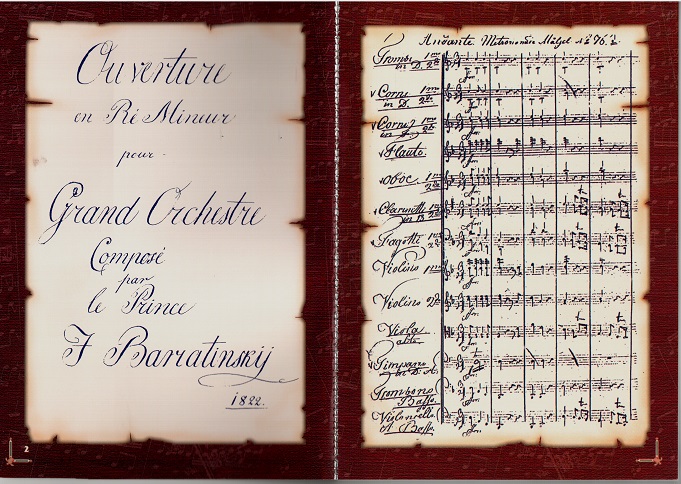 Ouverture
en Ré Mineur
pour
Grand Orchestre
Composé
par
le Prince
J Bariatinskij
1822.
2
Andante. Metronome Mälzel
76.
Trombe 1mo
in D. 2do
Corni 1mo
in D. 2do
Corni
2do
Flauto.
Oboe. 1mo
2do
Clarinetti 1mo
in B 2do
Fagotti 1mo
2do
Violino 1mo
Violino 2do
Viola
alto
Timpano
in D. A.
Trombone
Basso
Violoncello
Basso